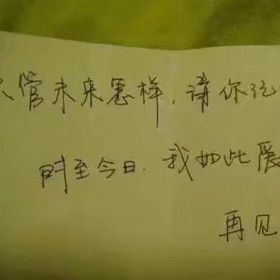 管未来怎样,请你记
时至今日.我如此爱
再见